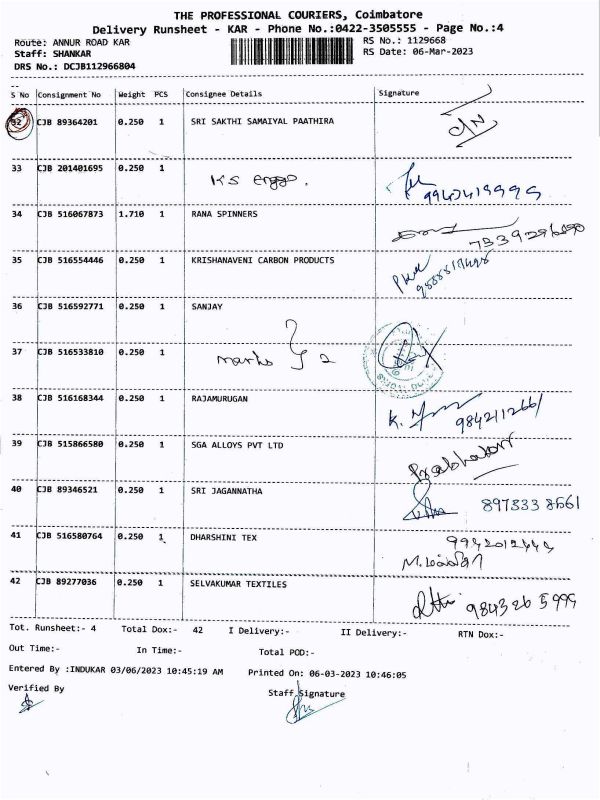 THE PROFESSIONAL COURIERS, Coimbatore
Delivery Runsheet - KAR - Phone No.:0422-3505555 - Page No.:4
Route: ANNUR ROAD KAR RS No.: 1129668
Staff: SHANKAR RS Date: 06-Mar-2023
DRS No.: DCJB112966804
S No Consignment No Weight PCS Consignee Details Signature
32 CJB 89364201 0.250 1 SRI SAKTHI SAMAIYAL PAATHIRA
33 CJB 201401695 0.250 1 KS
34 CJB 516067873 1.710 1 RANA SPINNERS
35 CJB 516554446 0.250 1 KRISHANAVENI CARBON PRODUCTS
36 CJB 516592771 0.250 1 SANJAY
37 CJB 516533810 0.250 1
38 CJB 516168344 0.250 1 RAJAMURUGAN 9842112661
39 CJB 515866580 0.250 1 SGA ALLOYS PVT LTD Prabhakar
40 CJB 89346521 0.250 1 SRI JAGANNATHA 897333 8661
41 CJB 516580764 0.250 1 DHARSHINI TEX
42 CJB 89277036 0.250 1 SELVAKUMAR TEXTILES 984326 5999
Tot. Runsheet:- 4 Total Dox:- 42 I Delivery:- II Delivery:- RTN Dox:-
Out Time:- In Time:- Total POD:-
Entered By :INDUKAR 03/06/2023 10:45:19 AM Printed On: 06-03-2023 10:46:05
Verified By Staff Signature